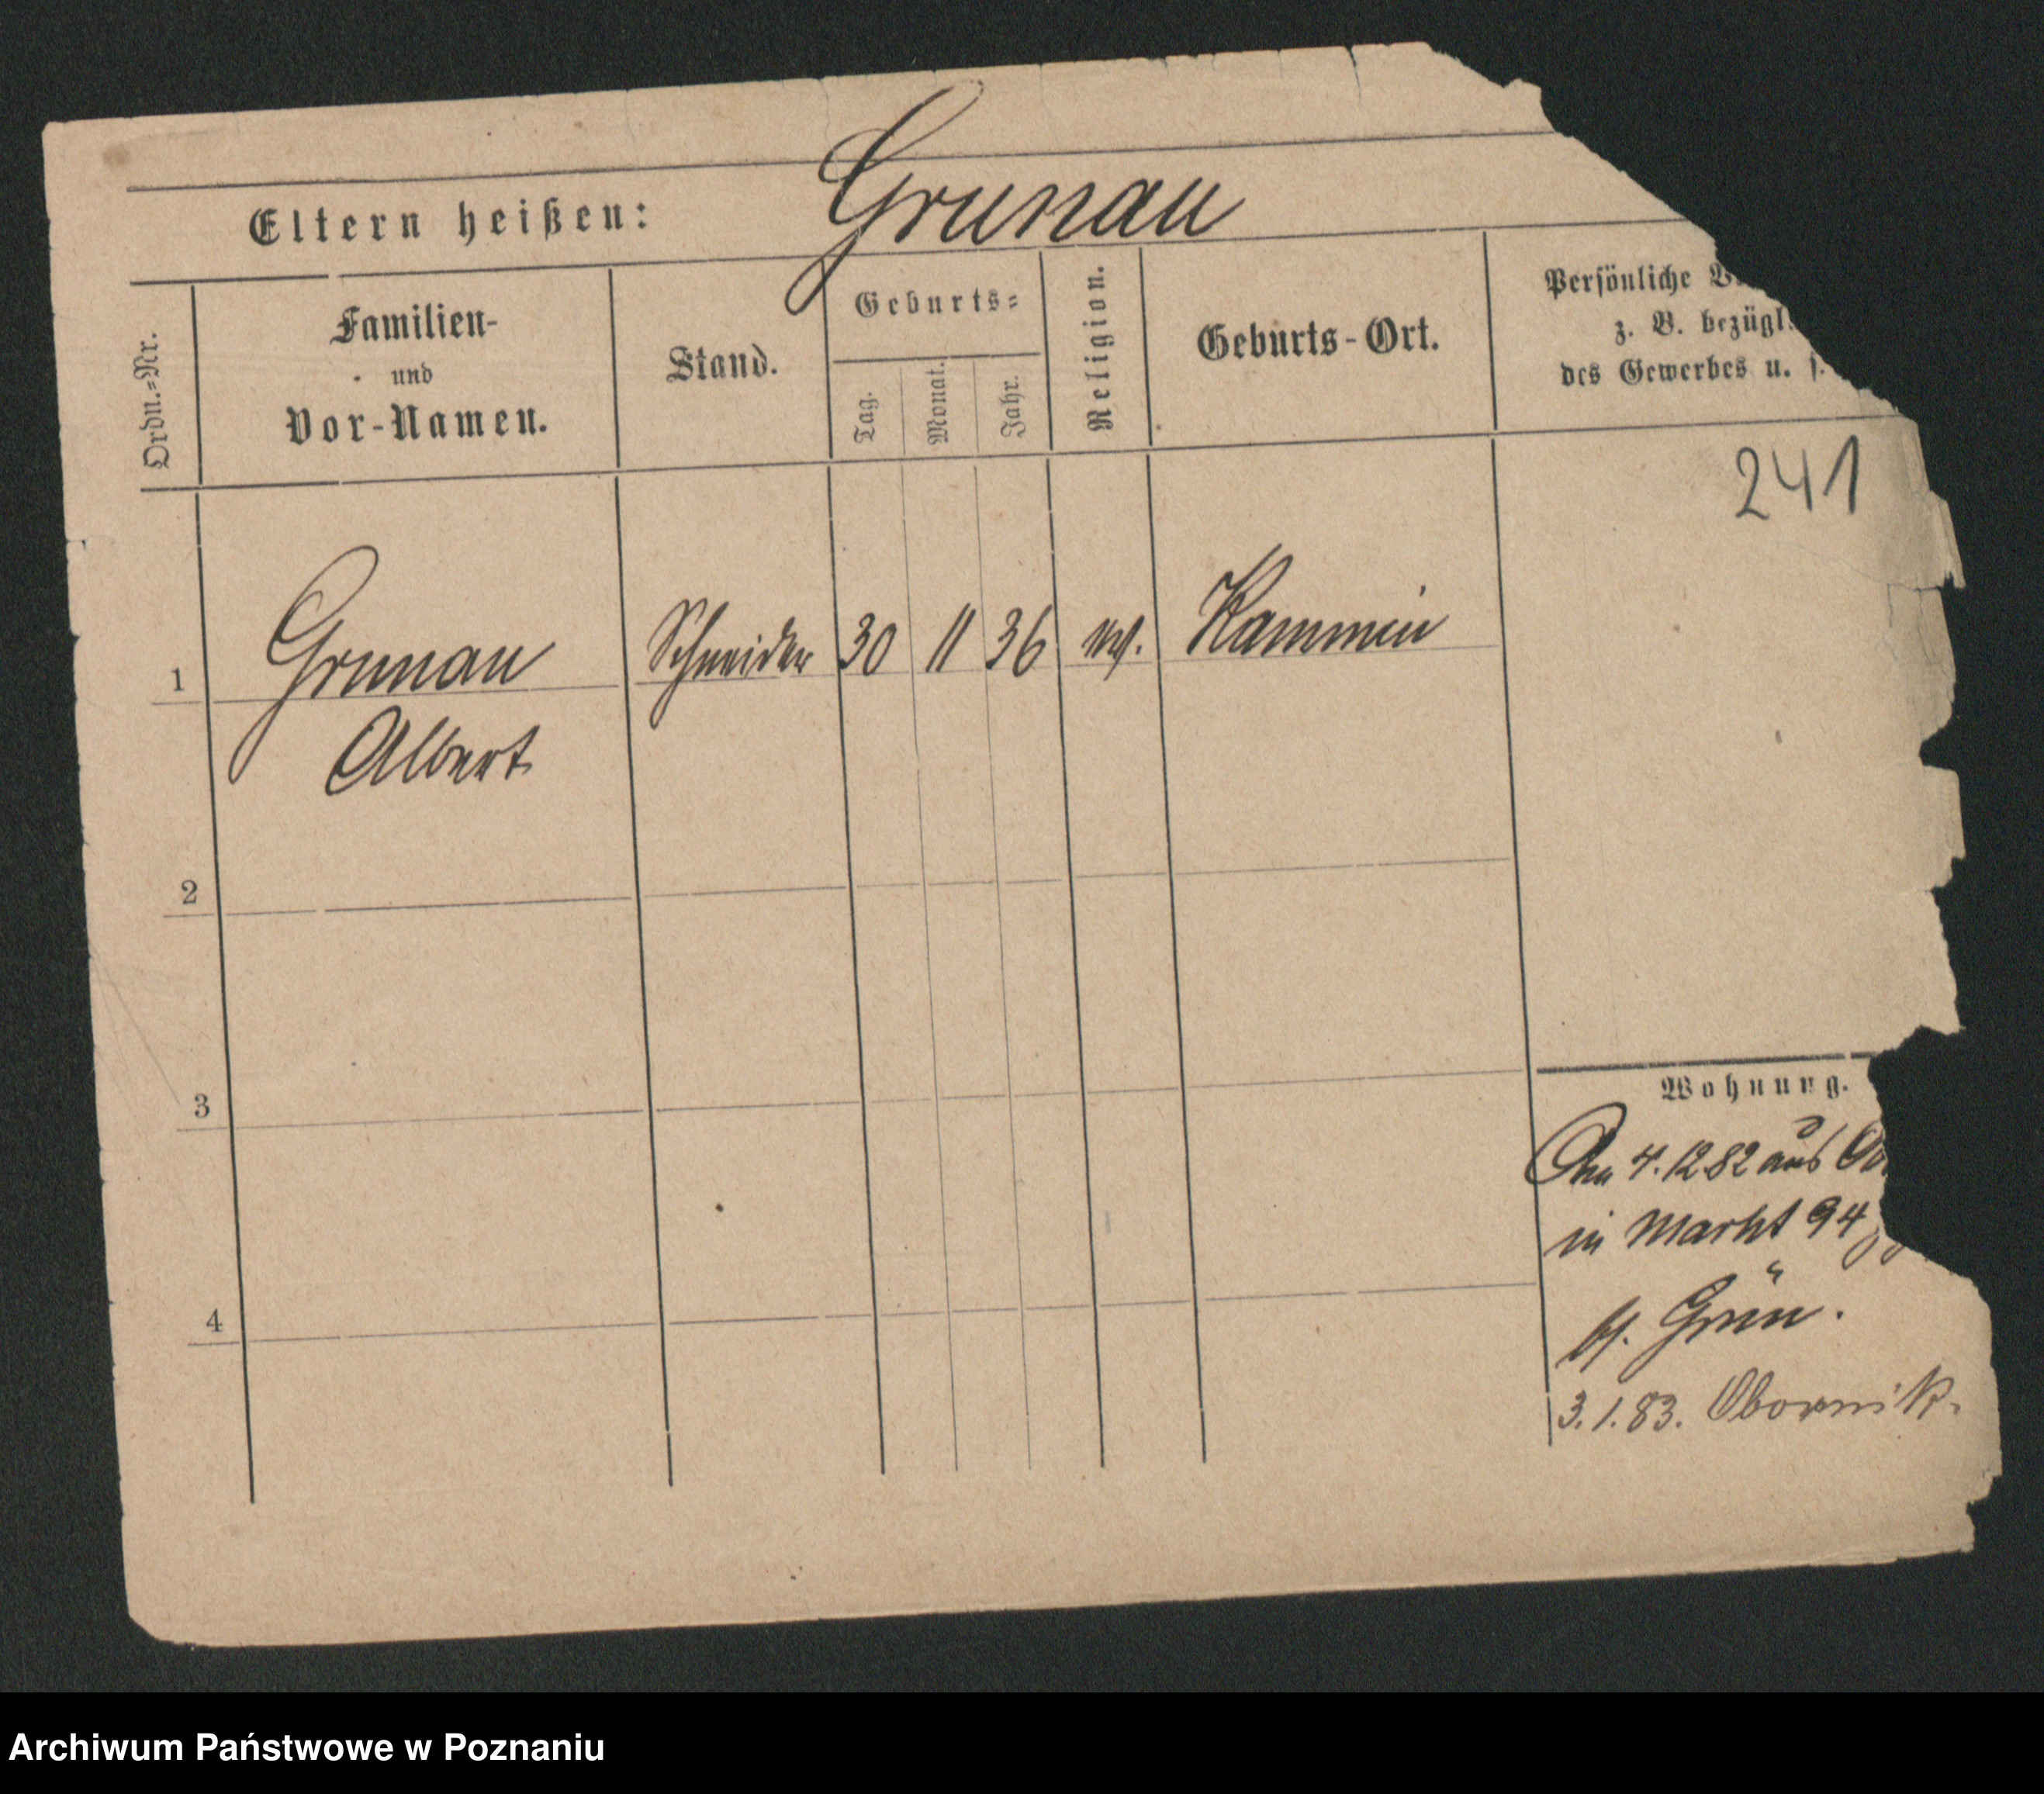 Eltern heißen: Grunau
Ordn.=Nr.
Familien-
und
Vor-Namen.
Stand.
Geburts=
Tag.
Monat.
Jahr.
Religion.
Geburts-Ort.
Persönliche
z. B. bezügl.
des Gewerbes u. s.
241
1 Grunau Schneider 30 11 36 Kammin
Albert
2
3
4
Wohnung.
4.12 82 aus
in Markt 94
Grün.
3.1.83. Obornik.
Archiwum Państwowe w Poznaniu